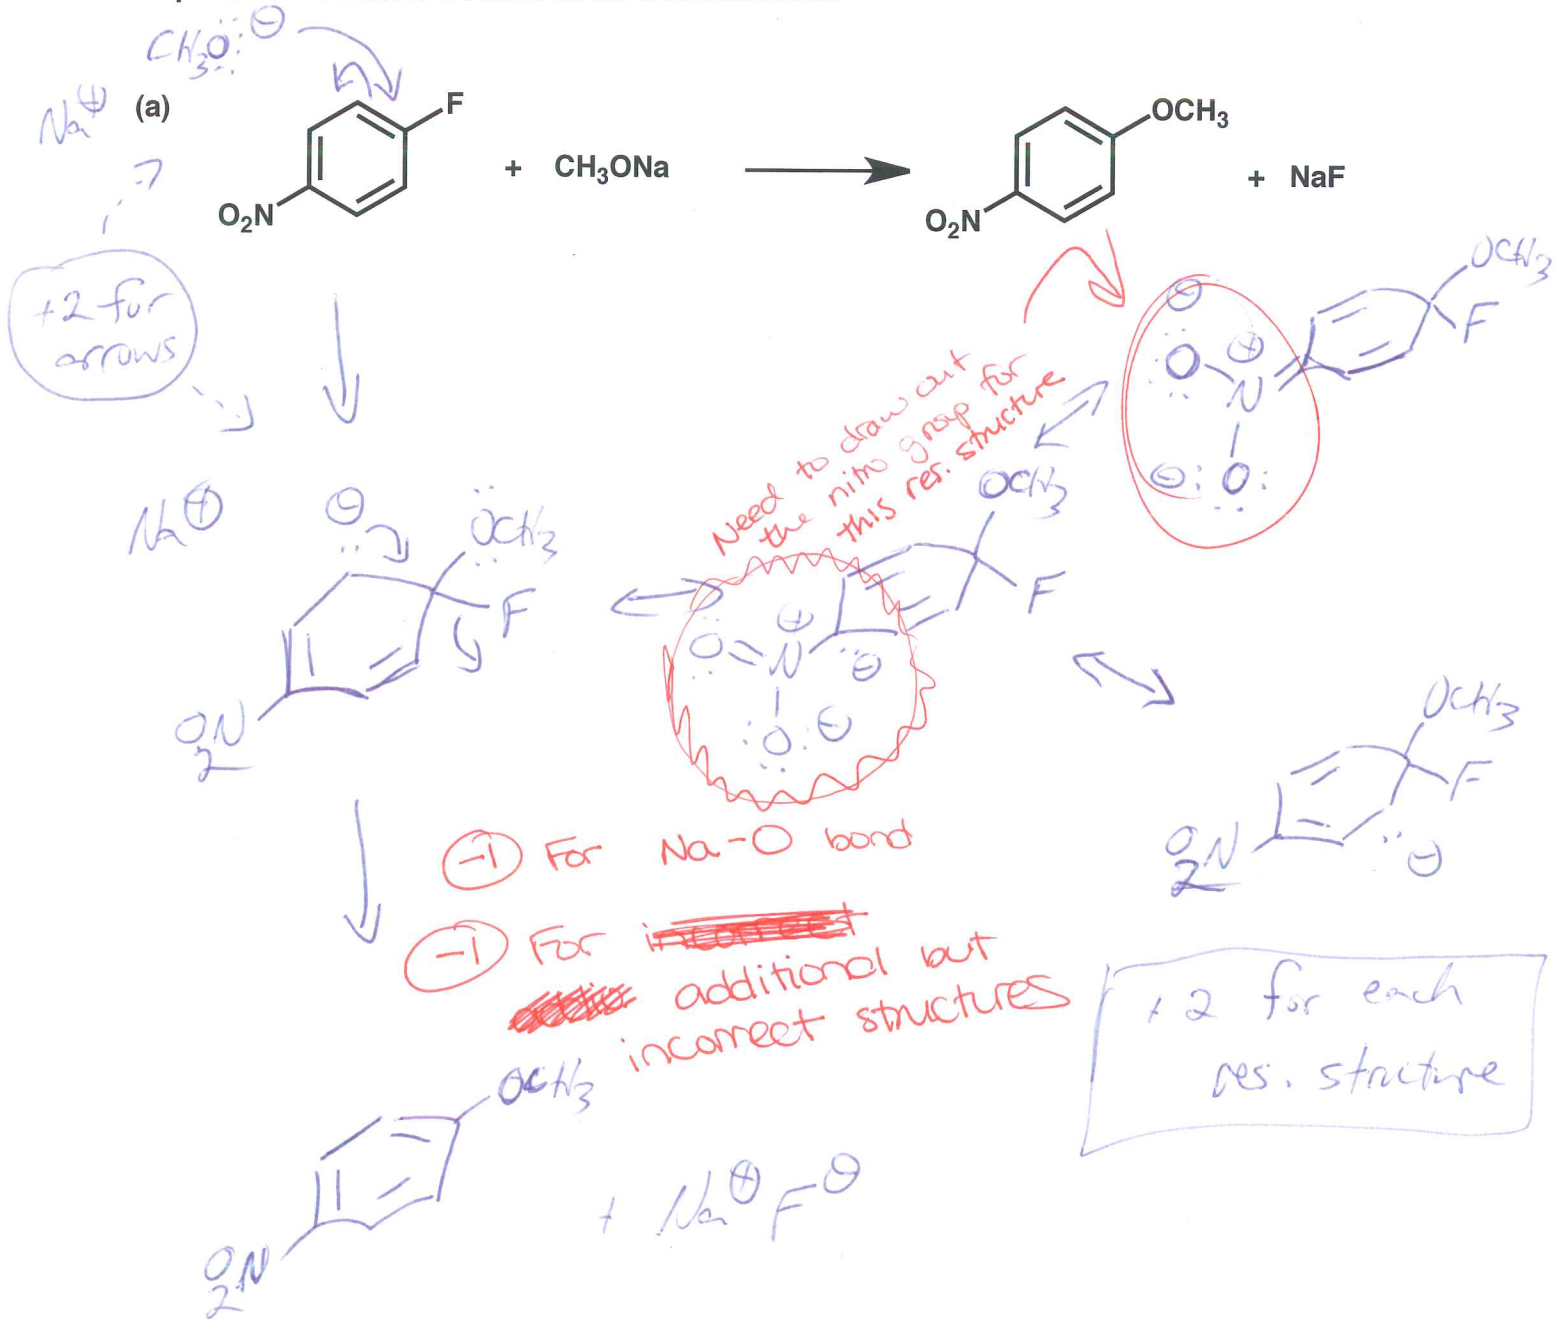 CH3O:⊖
Na⊕ (a)
F
O2N
+ CH3ONa
OCH3
O2N
+ NaF
+2 for
arrows
Need to draw out
the nitro group for
this res. structure
⊖
O
⊕
N
⊖:O:
OCH3
F
Na⊕
⊖
OCH3
F
O2N
OCH3
F
⊕
O=N
⊖
:O:⊖
OCH3
F
O2N
⊖
-1 For Na-O bond
-1 For incorrect
additional but
incorrect structures
+2 for each
res. structure
OCH3
O2N
+ Na⊕F⊖